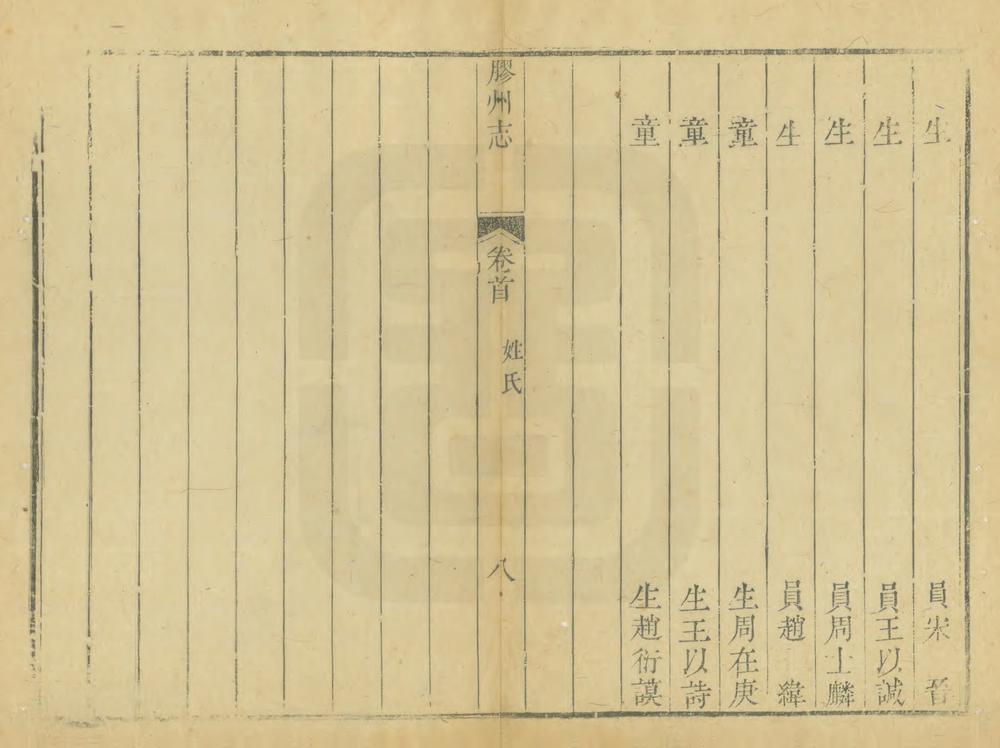 生員宋晉
生員王以誠
生員周士麟
生員趙緯
童生周在庚
童生王以詩
童生趙衍謨
膠州志 卷首 姓氏 八